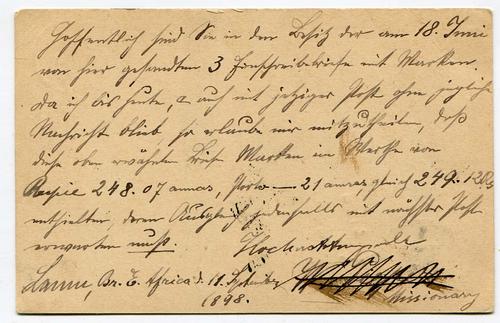 Hoffentlich sind Sie in den Besitz der am 18. Juni
von hier gesandten 3 Einschreibebriefe mit Marken.
Da ich bis heute, & auch mit jetziger Post ohne jegliche
Nachricht blieb so erlaube mir mitzutheilen, daß
diese oben erwähnten Brief Marken im Werthe von
Rupie 248.07 annas, Porto — 21 annas, gleich 249.
enthielten deren Rückgabe jedenfalls mit nächster Post
erwarten muß. Hochachtungsvoll
Lamu, Br. E. Africa d. 11. September
1898. Missionary